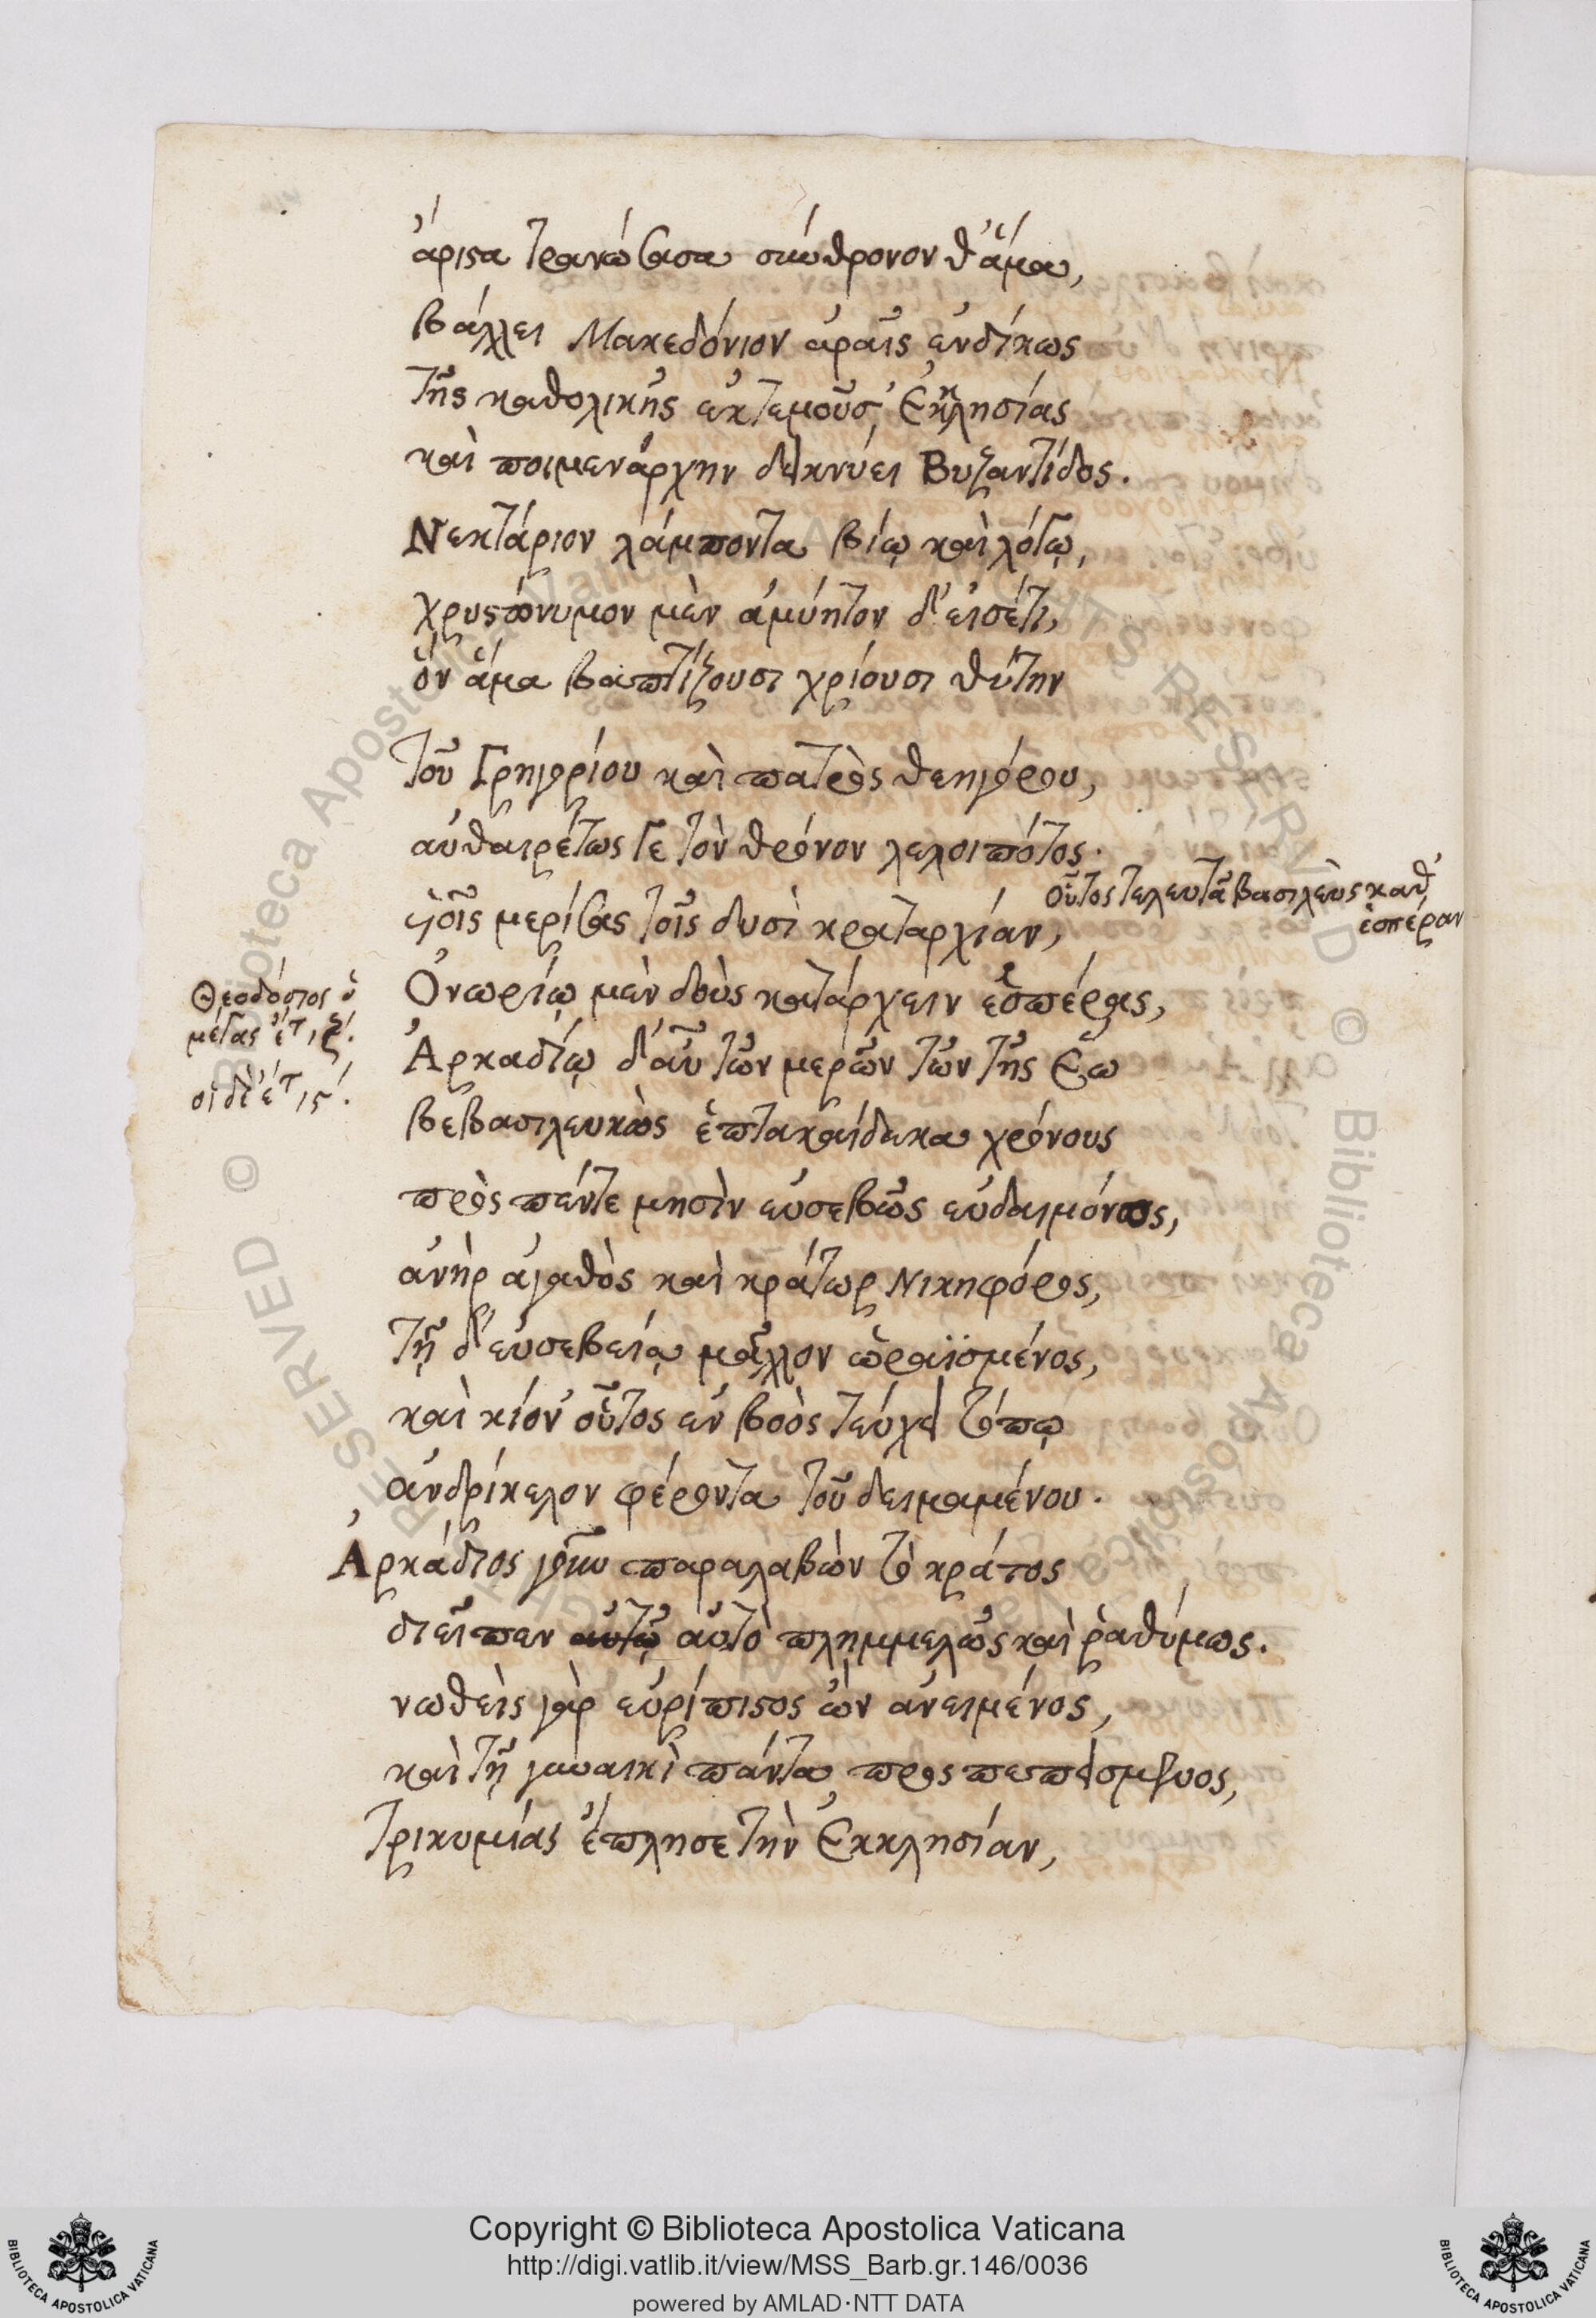 ἄριστα τρανώσασα σύνθρονον θ' ἅμα,
βάλλει Μακεδόνιον ἀραῖς ἐνδίκως
τῆς καθολικῆς ἐκτεμοῦσ' Ἐκκλησίας
καὶ ποιμενάρχην δεικνύει Βυζαντίδος.
Νεκτάριον λάμποντα βίῳ καὶ λόγῳ,
χρηστώνυμον μὲν ἀμύητον δ' εἰσέτι,
ὃν ἅμα βαπτίζουσι χρίουσι θύτην
τοῦ Γρηγορίου καὶ πατρὸς θεηγόρου,
αὐθαιρέτως γε τὸν θρόνον λελοιπότος.
υἱοῖς μερίσας τοῖς δυσὶ κραταρχίαν,
οὗτος τελευτᾷ βασιλεὺς καθ'
ἑσπέραν
Ὀνωρίῳ μὲν δοὺς κατάρχειν ἑσπέρας,
Θεοδόσιος ὁ
μέγας ἔτ ιζ.
οἱ δὲ ἔτ ις.
Ἀρκαδίῳ δ' αὖ τῶν μερῶν τῶν τῆς Ἕω
βεβασιλευκὼς ἑπτακαίδεκα χρόνους
πρὸς πέντε μησὶν εὐσεβῶς εὐδαιμόνως,
ἀνὴρ ἀγαθὸς καὶ κράτωρ Νικηφόρος,
τῇ δ' εὐσεβείᾳ μᾶλλον ὡραϊσμένος,
καὶ κίον' οὗτος ἐν βοὸς τεύχει τόπῳ
ἀνδρίκελον φέροντα τοῦ δειμαμένου.
Ἀρκάδιος γοῦν παραλαβὼν τὸ κράτος
διεῖπεν αὐτῷ αὐτὸ πλημμελῶς καὶ ῥαθύμως.
νωθεὶς γὰρ εὐρίπιστος ὢν ἀνειμένος,
καὶ τῇ γυναικὶ πάντα προσπεπεισμένος,
τρικυμίας ἔπλησε τὴν Ἐκκλησίαν,
Copyright © Biblioteca Apostolica Vaticana
http://digi.vatlib.it/view/MSS_Barb.gr.146/0036
powered by AMLAD·NTT DATA
BIBLIOTECA APOSTOLICA VATICANA
BIBLIOTECA APOSTOLICA VATICANA